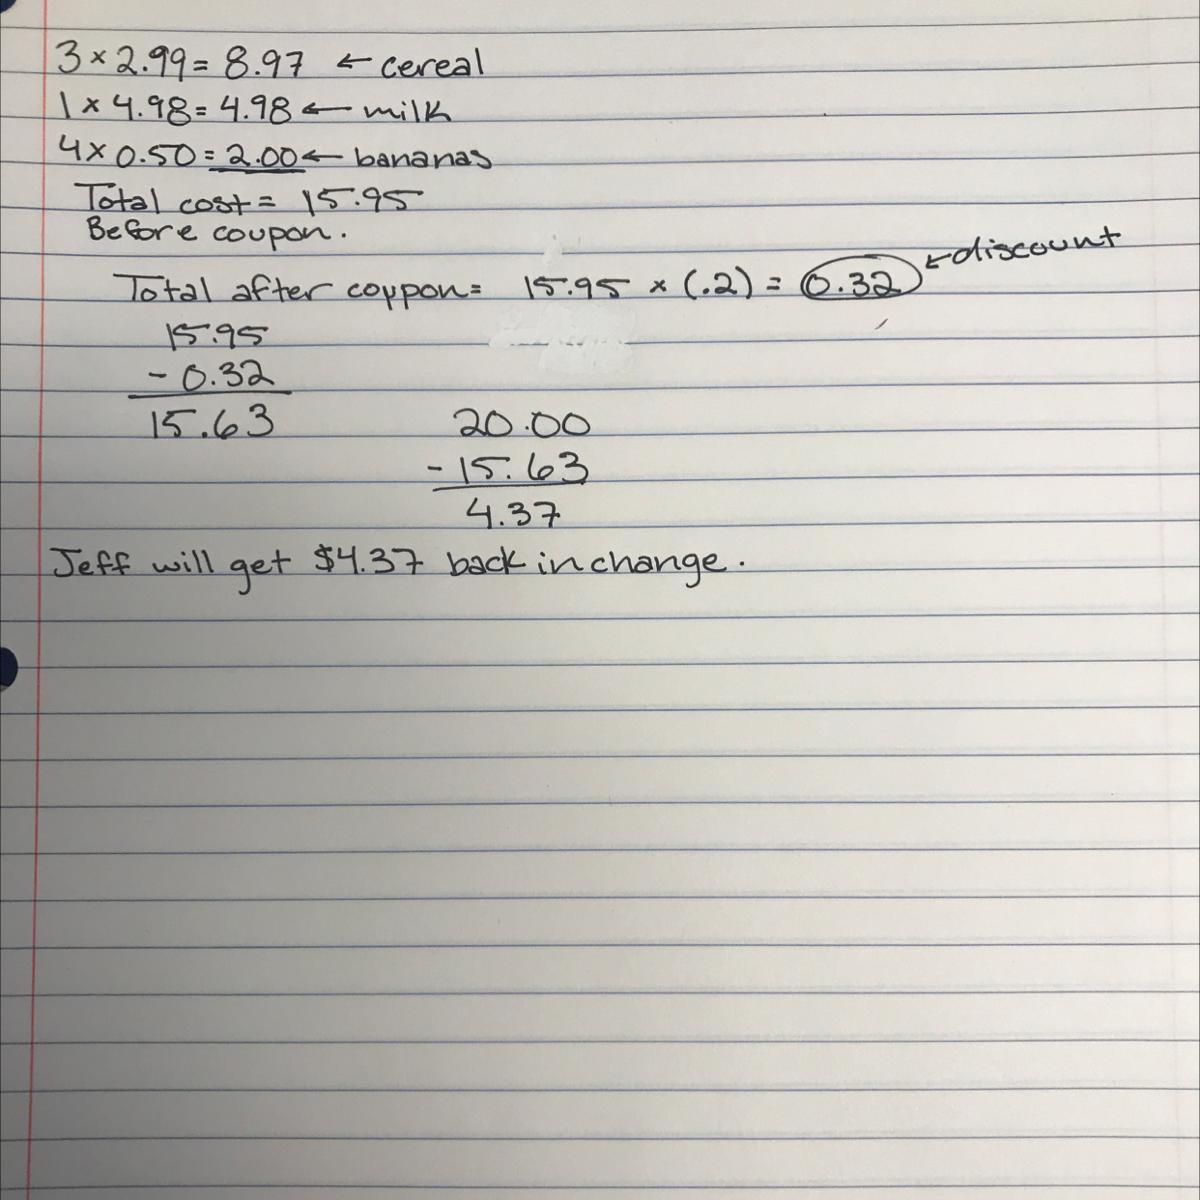 3 × 2.99 = 8.97 ← cereal
1 × 4.98 = 4.98 ← milk
4 × 0.50 = 2.00 ← bananas
Total cost = 15.95
Before coupon.
Total after coypon = 15.95 × (.2) = 0.32 ← discount
15.95
- 0.32
15.63
20.00
- 15.63
4.37
Jeff will get $4.37 back in change.